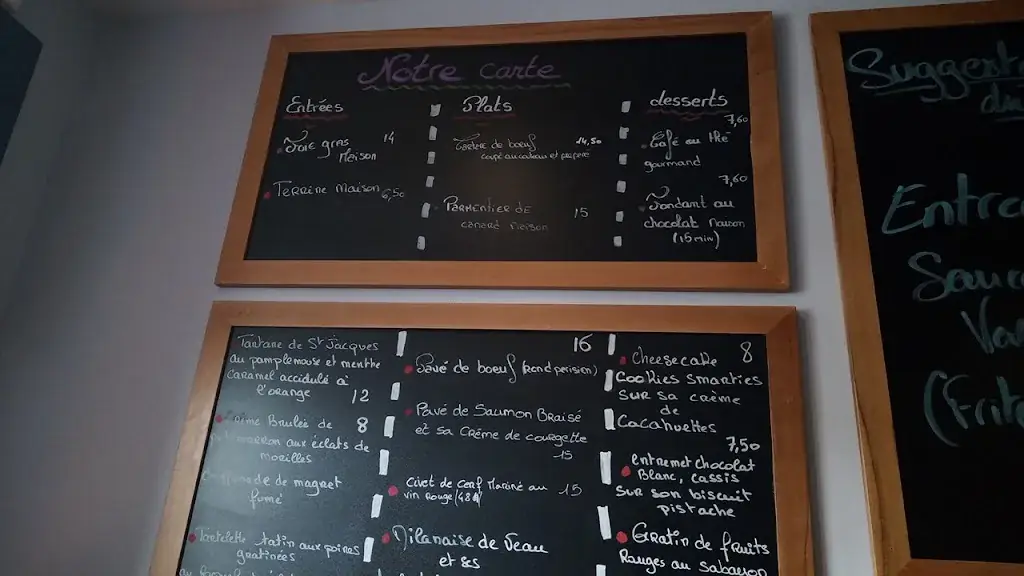 Notre carte
Entrées
Foie gras 14
Maison
Terrine Maison 6,50
Plats
Tartare de boeuf 14,50
coupé au couteau et préparé
Parmentier de 15
canard Maison
desserts
7,60
Café ou thé
gourmand
7,60
Fondant au
chocolat Maison
(15min)
Tartare de St Jacques
au pamplemousse et menthe
Caramel accidulé à
l'orange 12
Brulée de 8
aux éclats de
morilles
de magret
fumé
Tartelette tatin aux poires
gratinées
16
Pavé de boeuf
Pavé de Saumon Braisé
et sa Crème de courgette
15
Civet de Cerf Mariné au 15
vin Rouge (48h)
Milanaise de Veau
et ses
Cheesecake 8
Cookies Smarties
sur sa crème
de
Cacahuettes
7,50
entremet chocolat
Blanc, cassis
sur son biscuit
pistache
Gratin de fruits
Rouges au sabayon